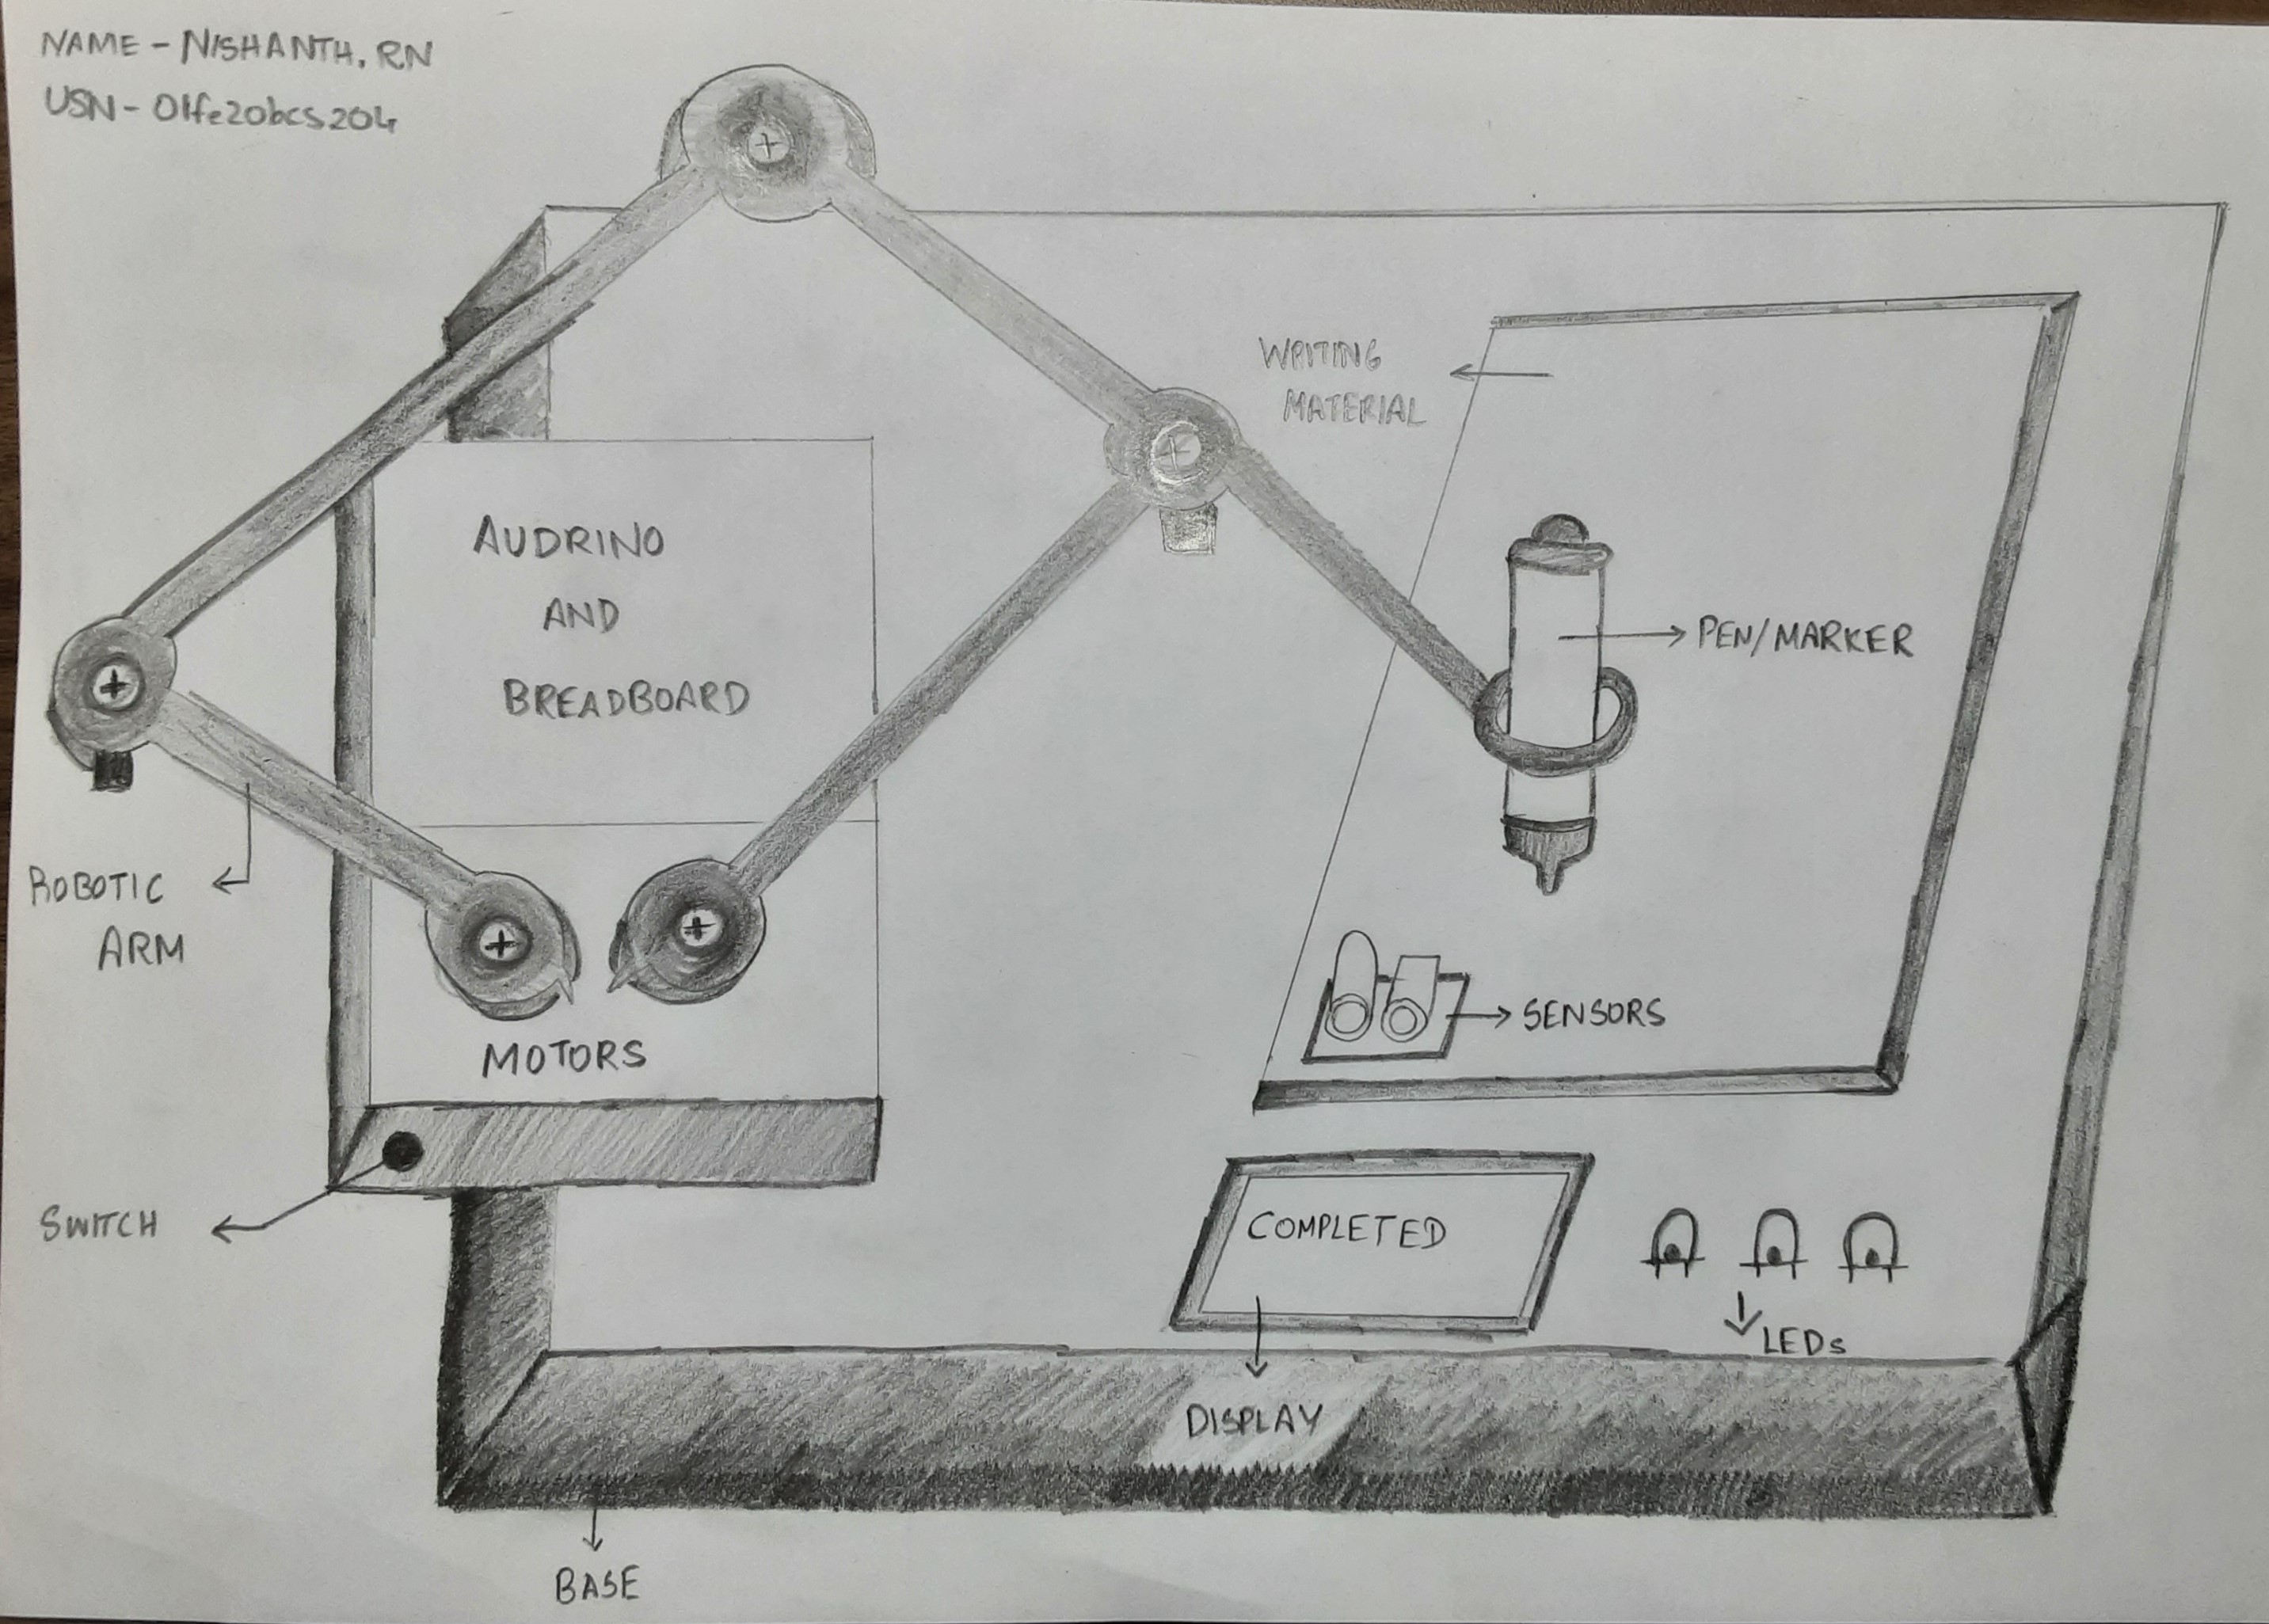 NAME - NISHANTH. RN
USN - 01fe20bcs204
WRITING
MATERIAL
AUDRINO
AND
BREADBOARD
PEN/MARKER
ROBOTIC
ARM
SENSORS
MOTORS
SWITCH
COMPLETED
LEDs
DISPLAY
BASE